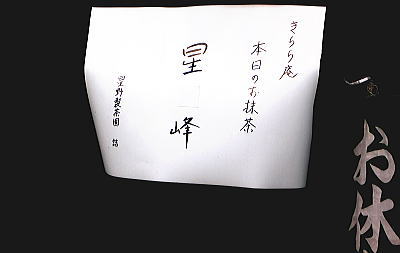 きらら庵
本日のお抹茶
星峰
星野製茶園 詰
お休